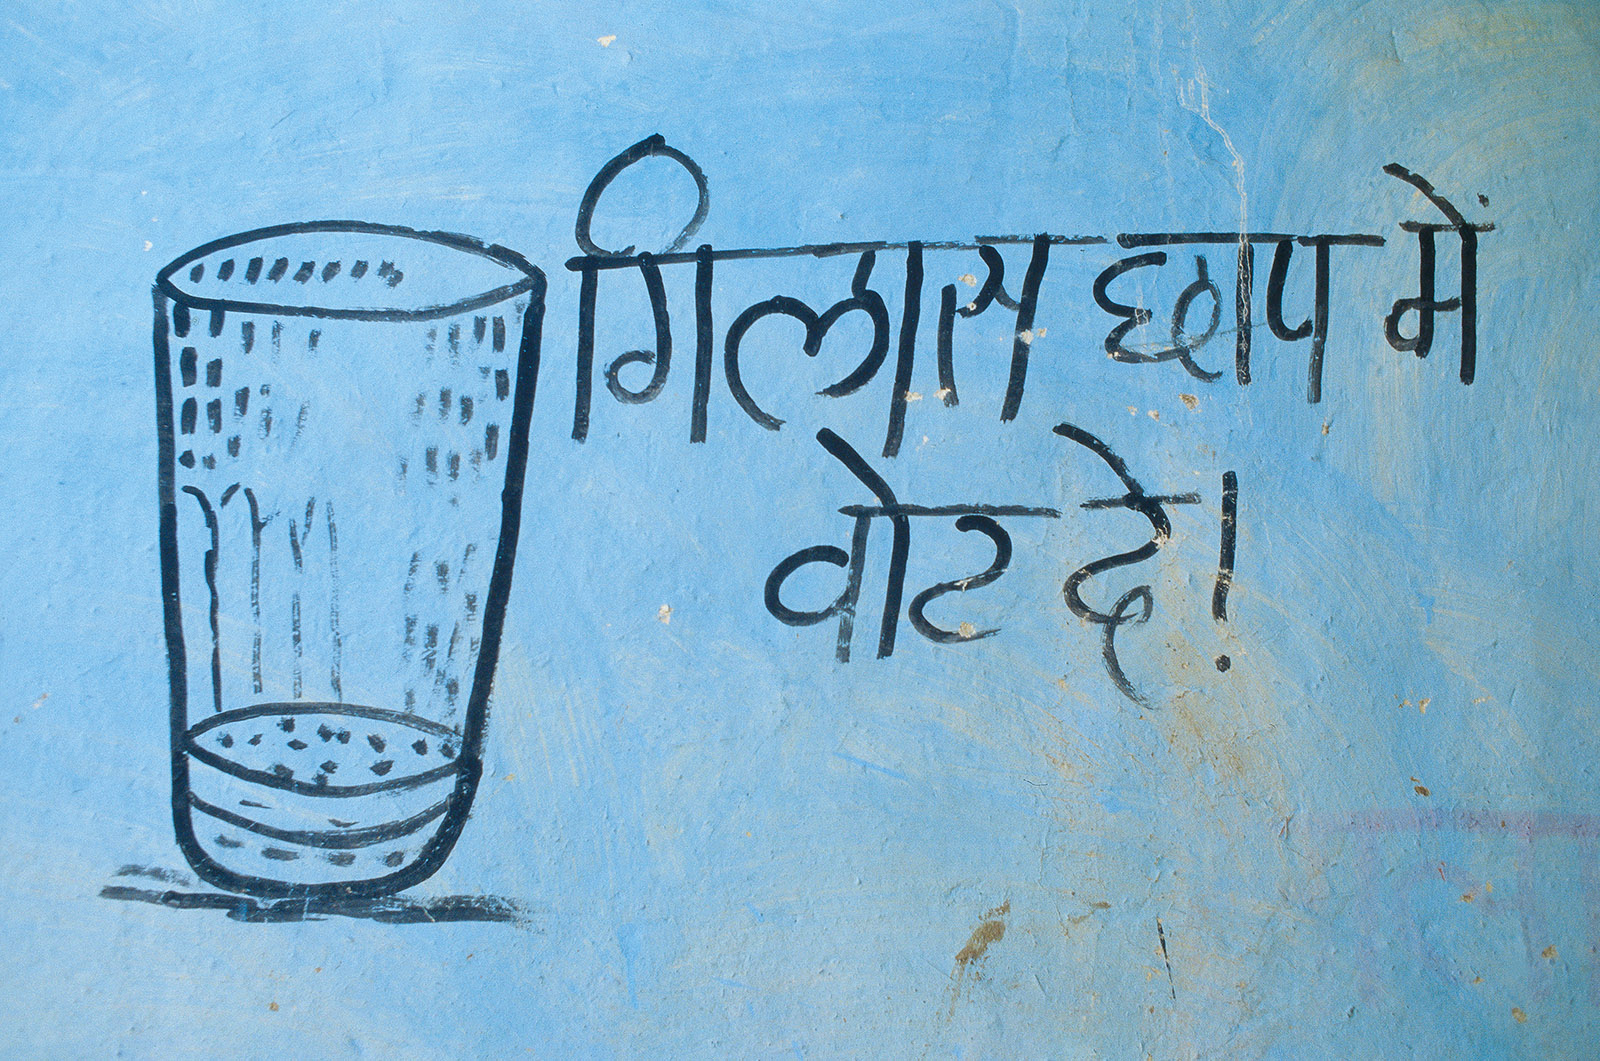 गिलास छाप में
वोट दे!